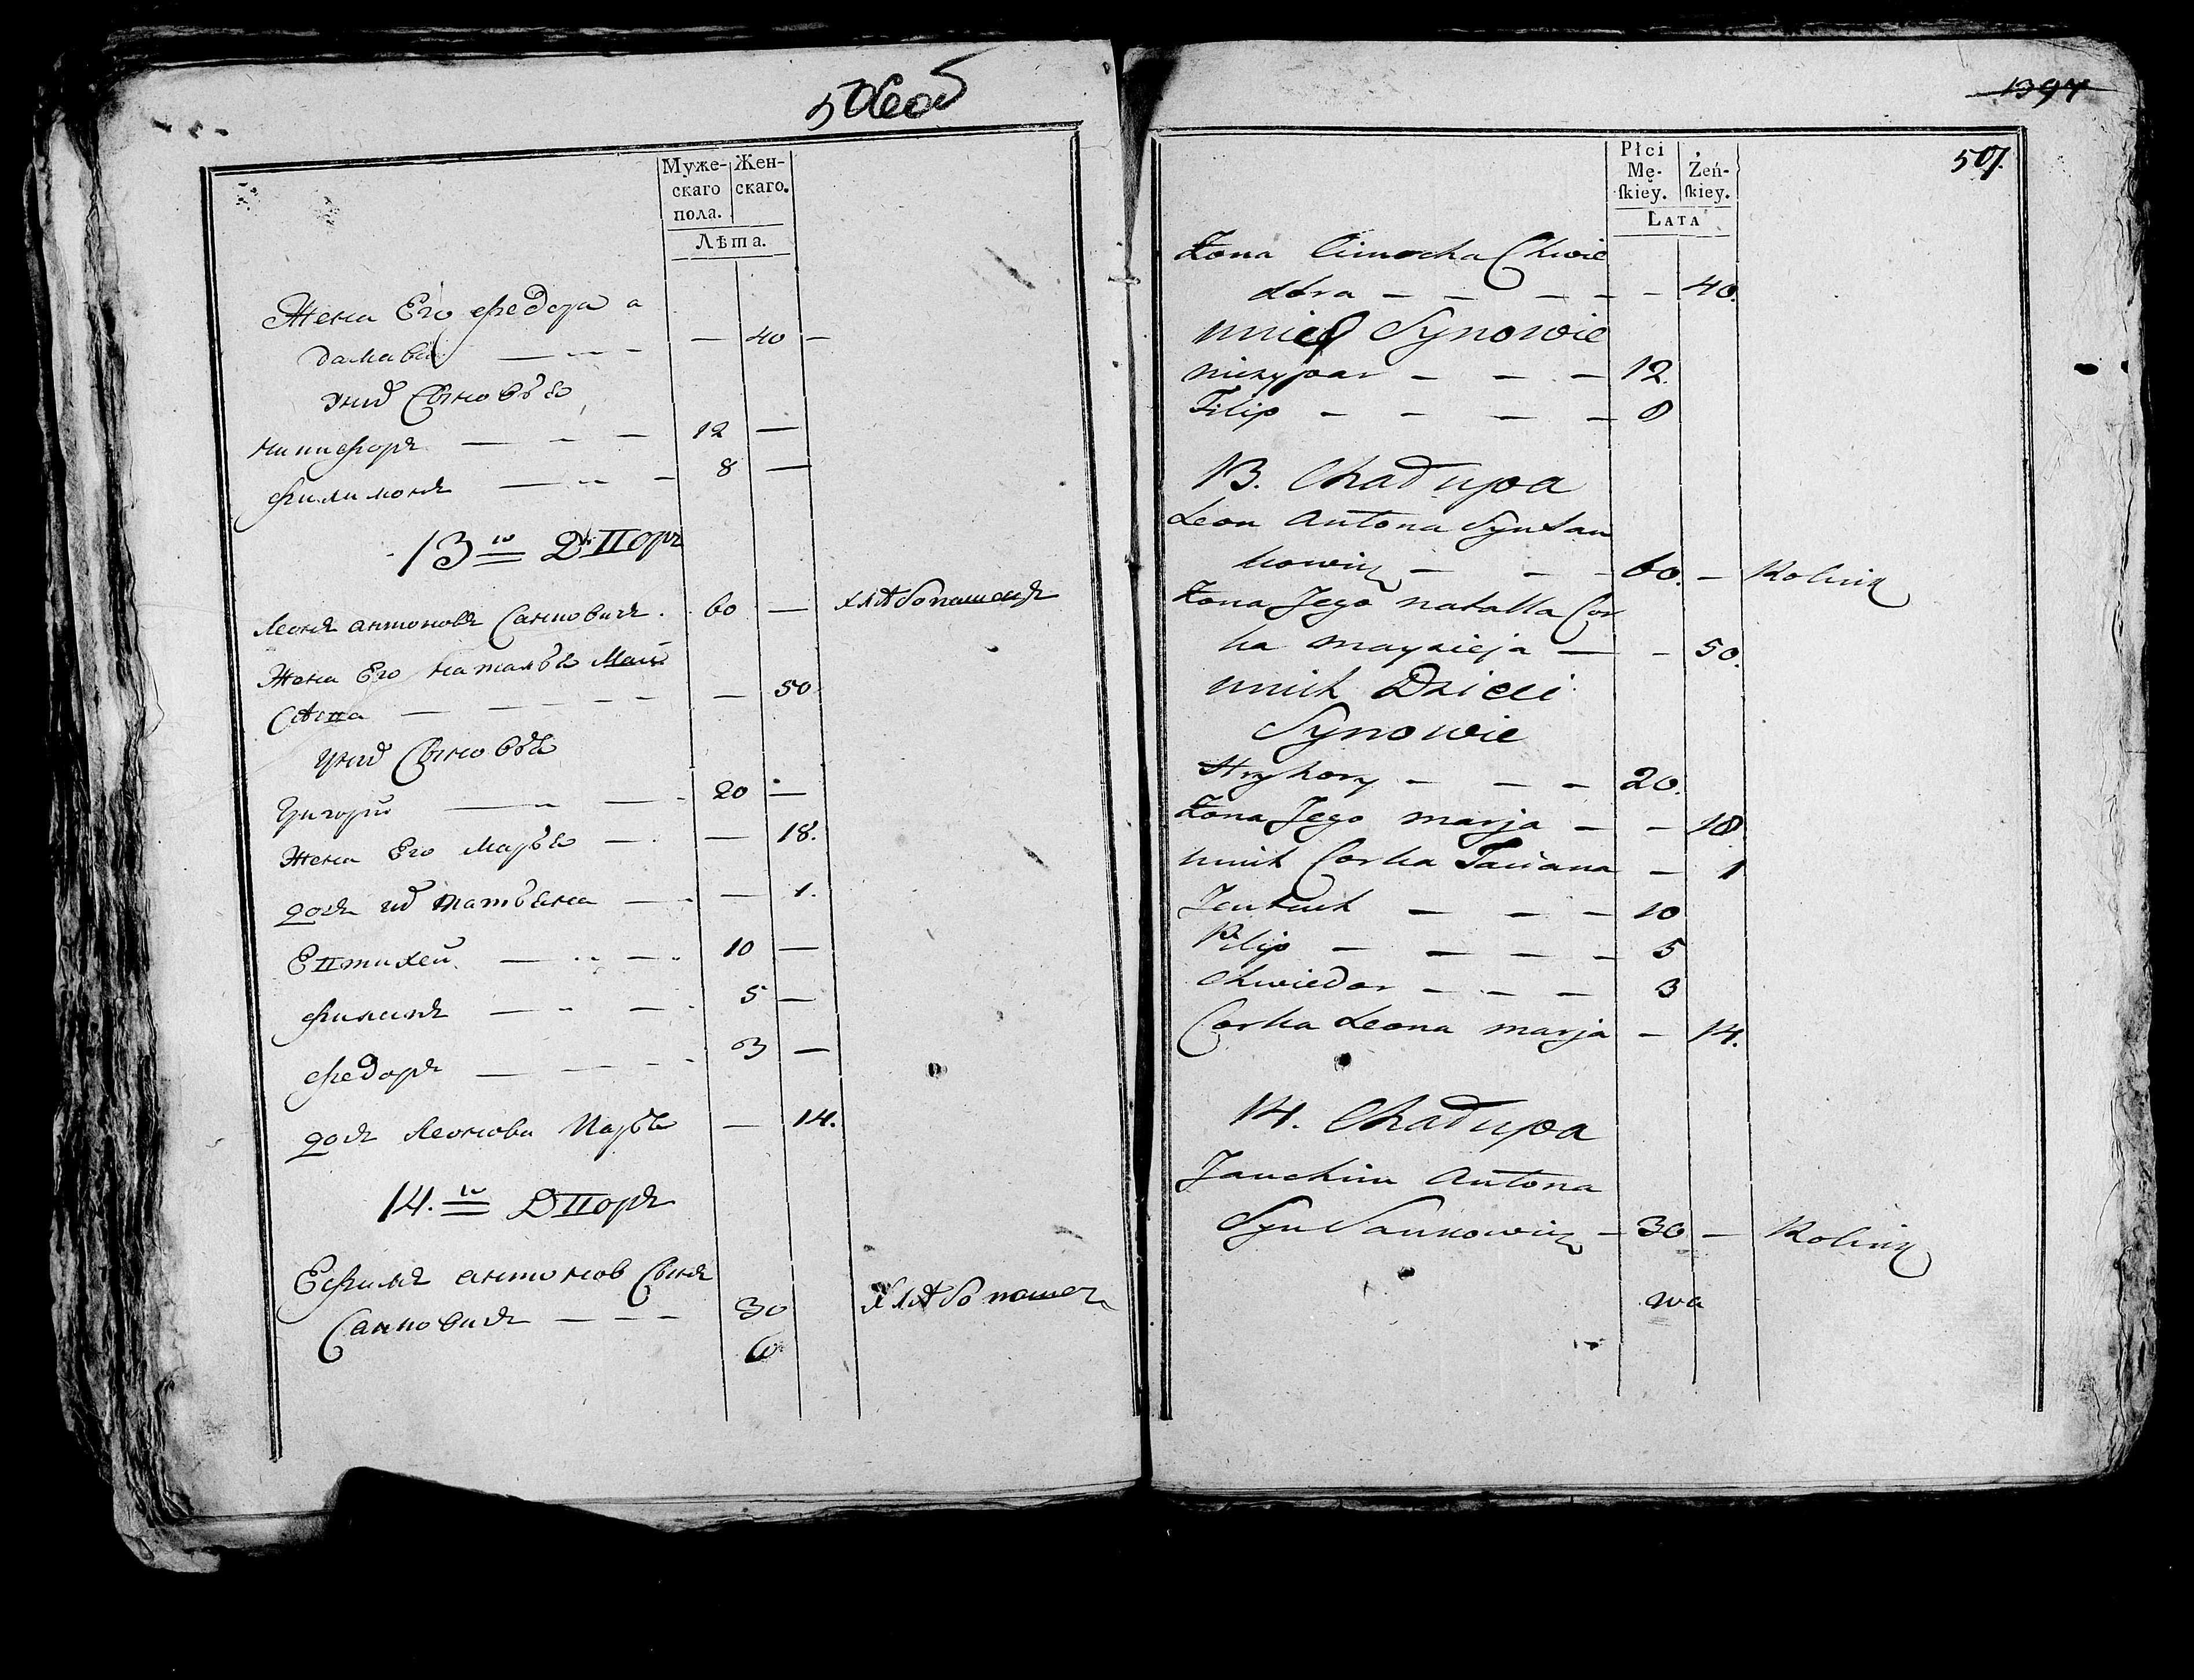 506 об
Муже-
скаго
пола.
Жен-
скаго.
Лѣта.
Жена Его Федора а
дамава — — — — 40 —
Унихъ Сыновья
никифоръ — — — 12 —
филимонъ — — — 8 —
13й Дворъ
Леонъ антоновъ Санковичъ . 60 — хлѣбопашецъ
Жена Его наталья Маи
сѣева — — — — — 50
Унихъ Сыновья
Григорій — — — 20 —
Жена Его Марья — — 18.
дочь ихъ татьяна — — 1.
Евтихей — — — 10 —
филипъ — — — 5 —
федоръ — — — 3 —
дочь Леонова Марья — 14.
14.й Дворъ
Ефимъ антонов Сынъ
Санковичъ — — — 30 хлѣбопашец
1394
507.
Płci
Mę-
skiey.
Żeń-
skiey.
LATA
Żona Cimocha Chwie
dora — — — — — 40.
unich Synowie
niczypar — — — 12.
Filip — — — — 8
13. Chałupa
Leon Antona Syn San
kowicz — — — 60. — Rolnik
Żona Jego natalla Cor
ka maysieja — — 50.
unich Dzieci
Synowie
Hryhory — — — 20.
Żona Jego marja — — 18
unich Corka Taciana — 1
Jeutuch — — — 10
Pilip — — — — 5
Chwiedor — — — 3
Corka Leona marja — 14.
14. Chałupa
Jauchim Antona
Syn Sankowicz — 30 — Rolnik
wa